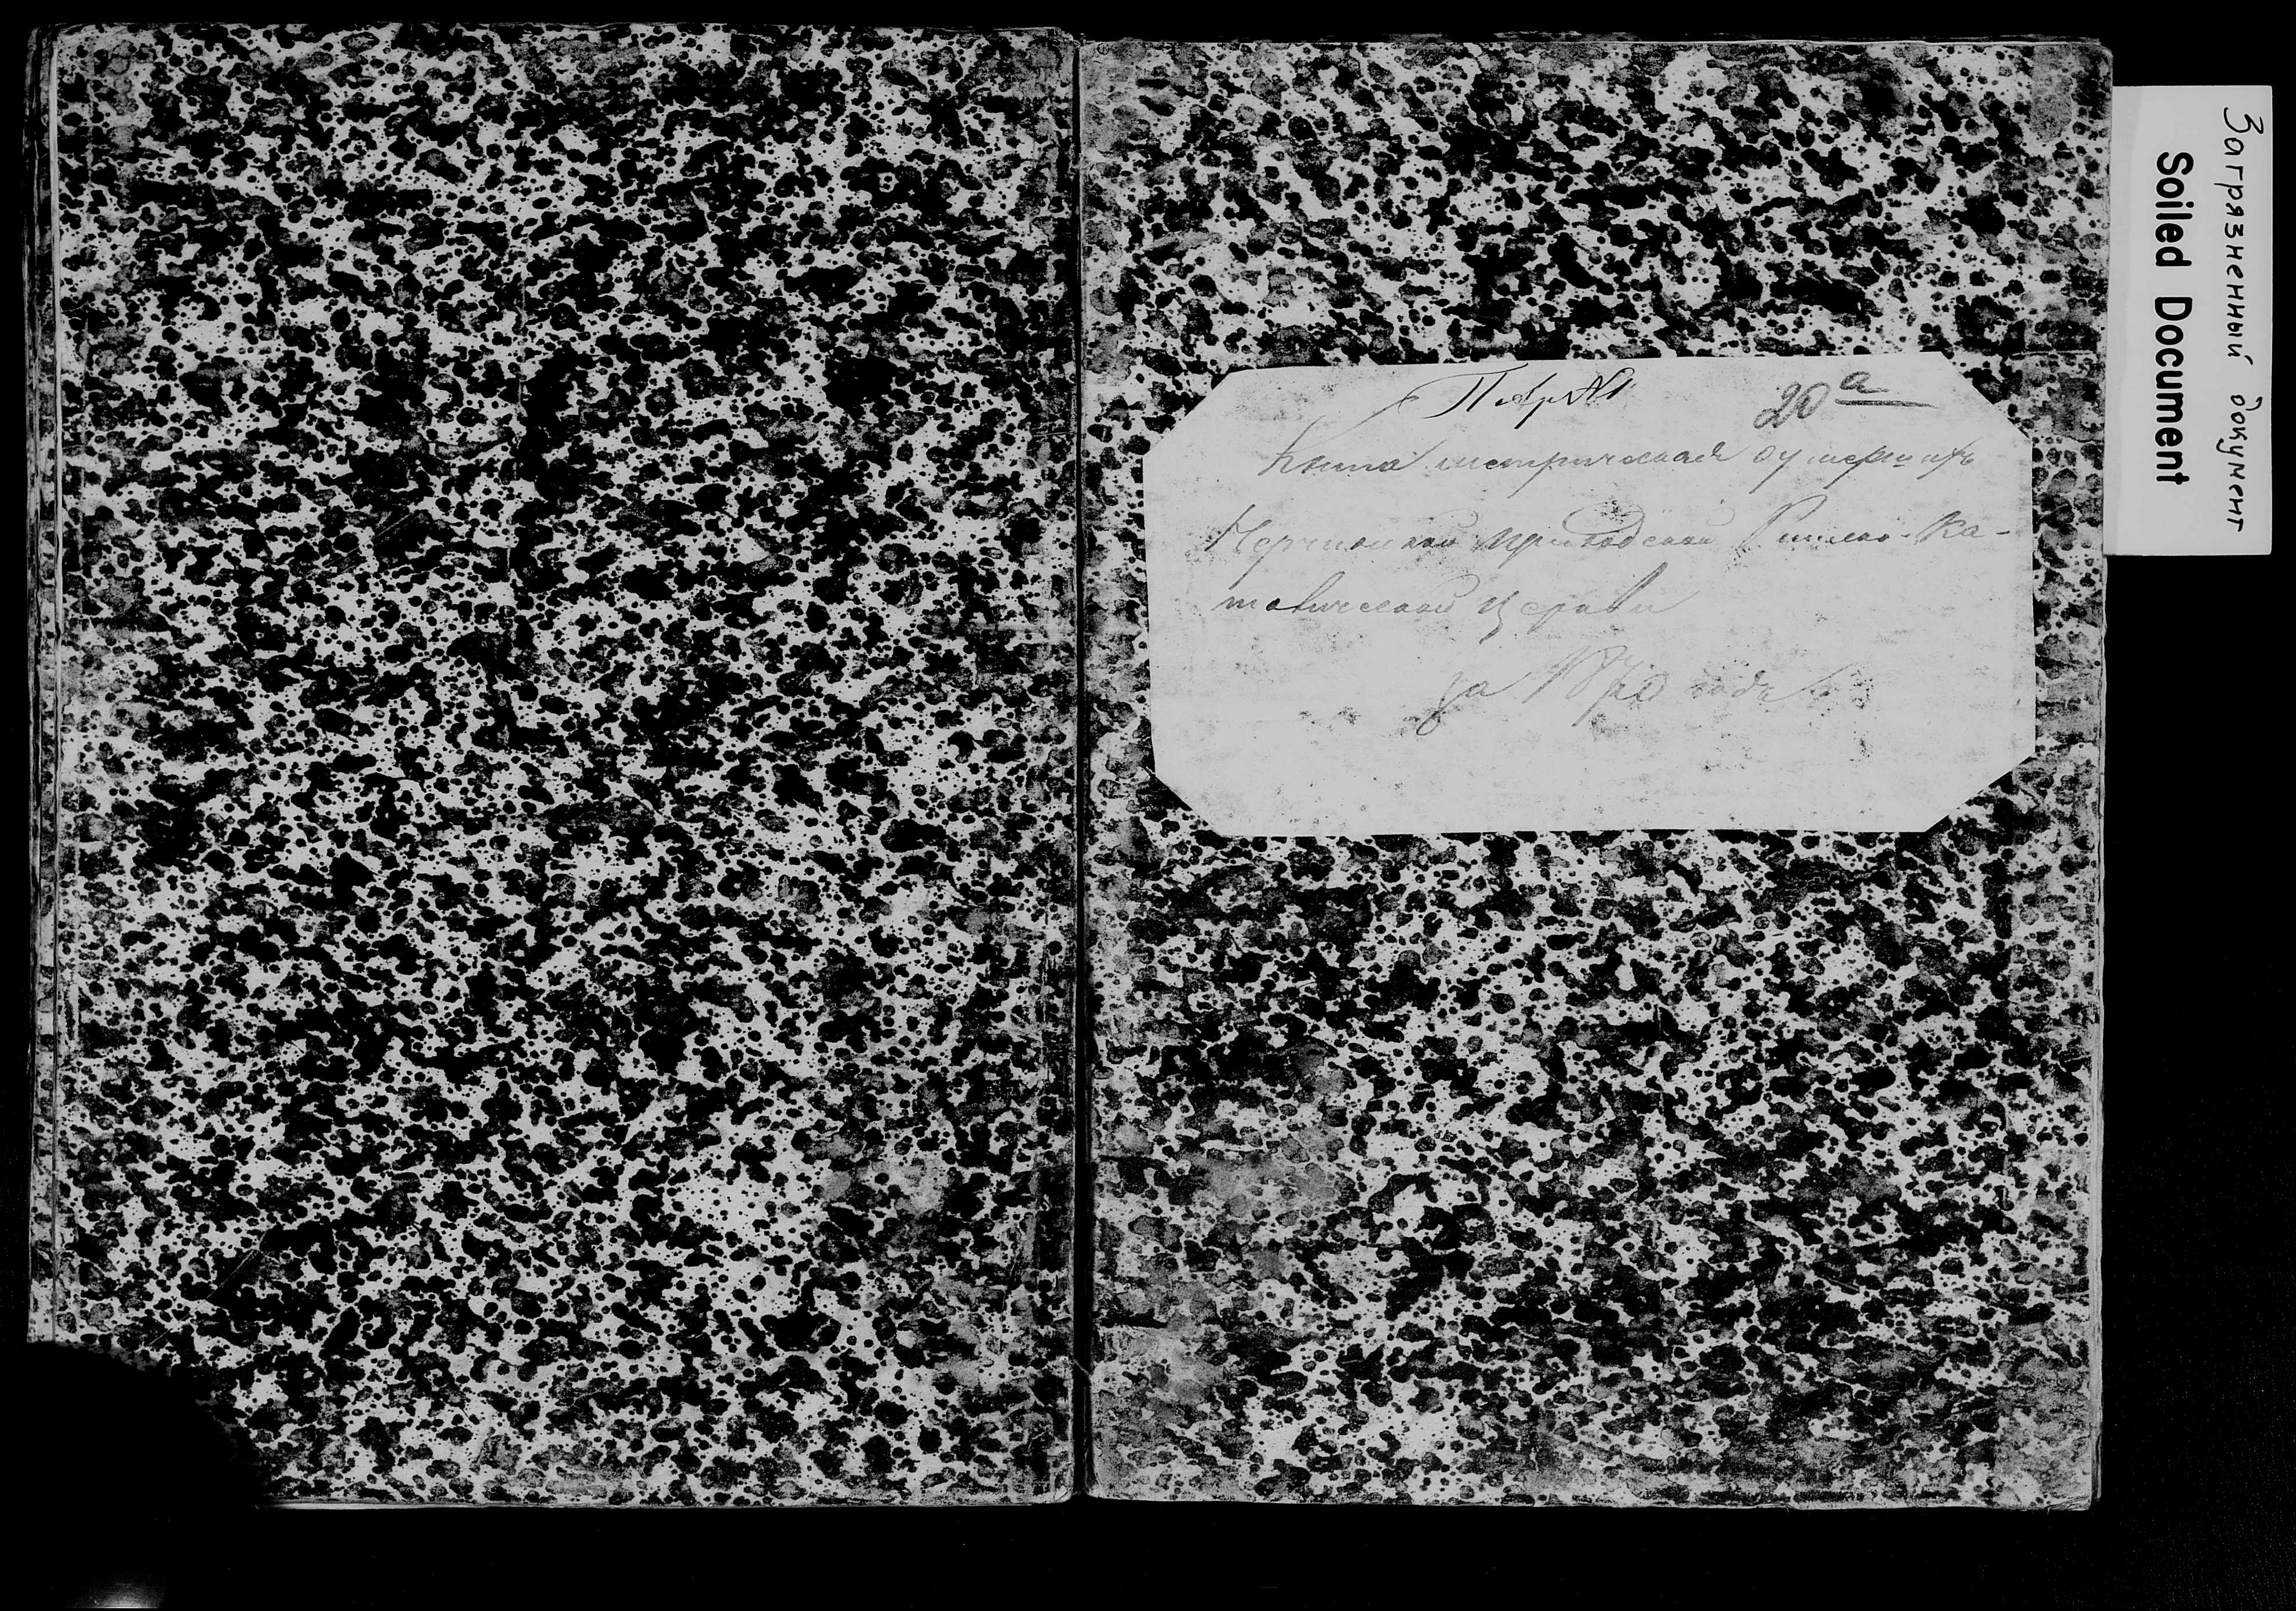 20 а
Книга метрическая о умершихъ
Нерчинской приходской Римско-Ка-
толической церкви
за года
Загрязненный документ
Soiled Document